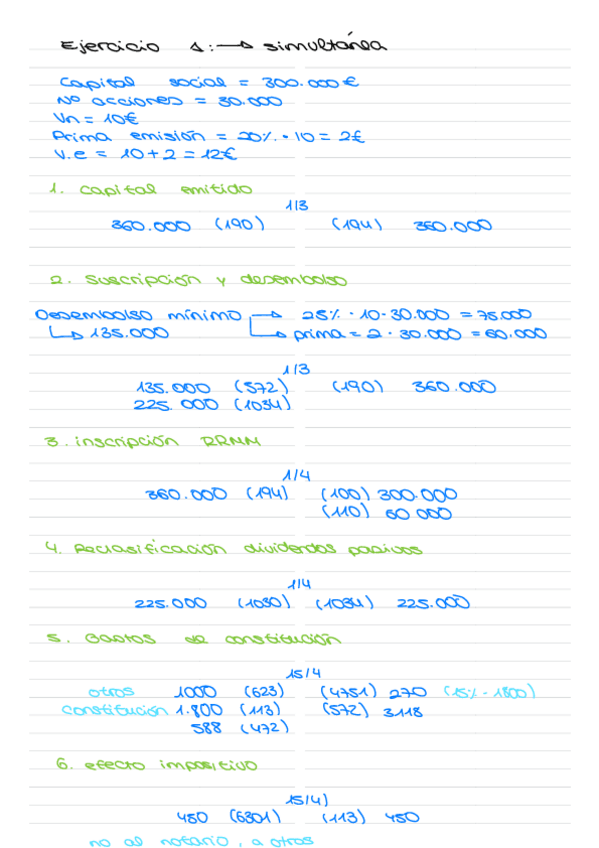 Ejercicio 1: → simultánea
Capital social = 300.000€
Nº acciones = 30.000
Vn = 10€
Prima emisión = 20% · 10 = 2€
V.e = 10+2 = 12€
1. Capital emitido
1/3
360.000 (190) (194) 360.000
2. Suscripción y desembolso
Desembolso mínimo → 25% · 10 · 30.000 = 75.000
↳ 135.000 ↳ prima = 2 · 30.000 = 60.000
1/3
135.000 (572) (190) 360.000
225.000 (1034)
3. inscripción RRMM
1/4
360.000 (194) (100) 300.000
(110) 60.000
4. Reclasificación dividendos pasivos
1/4
225.000 (1030) (1034) 225.000
5. Gastos de constitución
15/4
otros 1000 (623) (4751) 270 (15% · 1800)
constitución 1.800 (113) (572) 3118
588 (472)
6. efecto impositivo
15/4)
450 (6301) (113) 450
no al notario, a otros